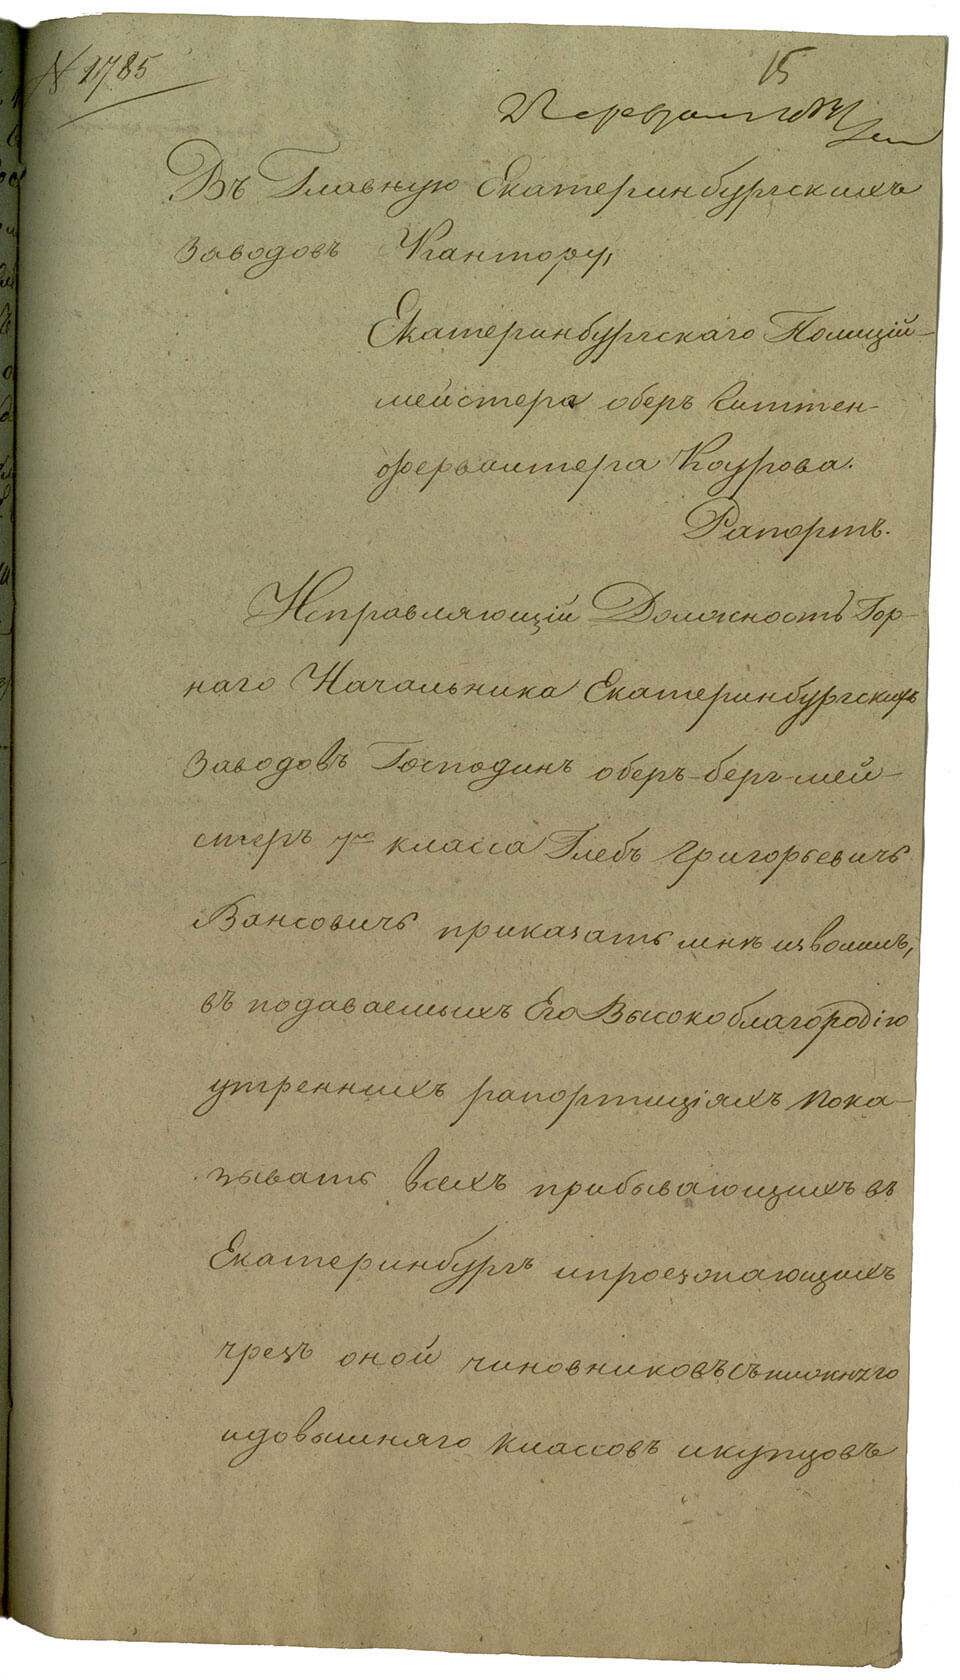 N 1785
15
Въ Главную Екатеринбургскихъ
заводовъ Кантору,
Екатеринбургскаго Полицій-
мейстера оберъ Гиттен-
ферваитера Каурова.
Рапортъ.
Исправляющій Должность Гор-
наго Начальника Екатеринбургскихъ
заводовъ Господинъ оберъ-берг-мей-
стеръ 7го класса Глебъ Григорьевичь
Вансовичь приказать мнѣ изволилъ,
въ подаваемыхъ Его Высокоблагородію
утреннихъ рапортиціяхъ пока-
зывать всехъ прибывающихъ въ
Екатеринбургъ ипроезжающихъ
чрезъ оной чиновниковъ съ нижняго
идовышняго классовъ икупцовъ